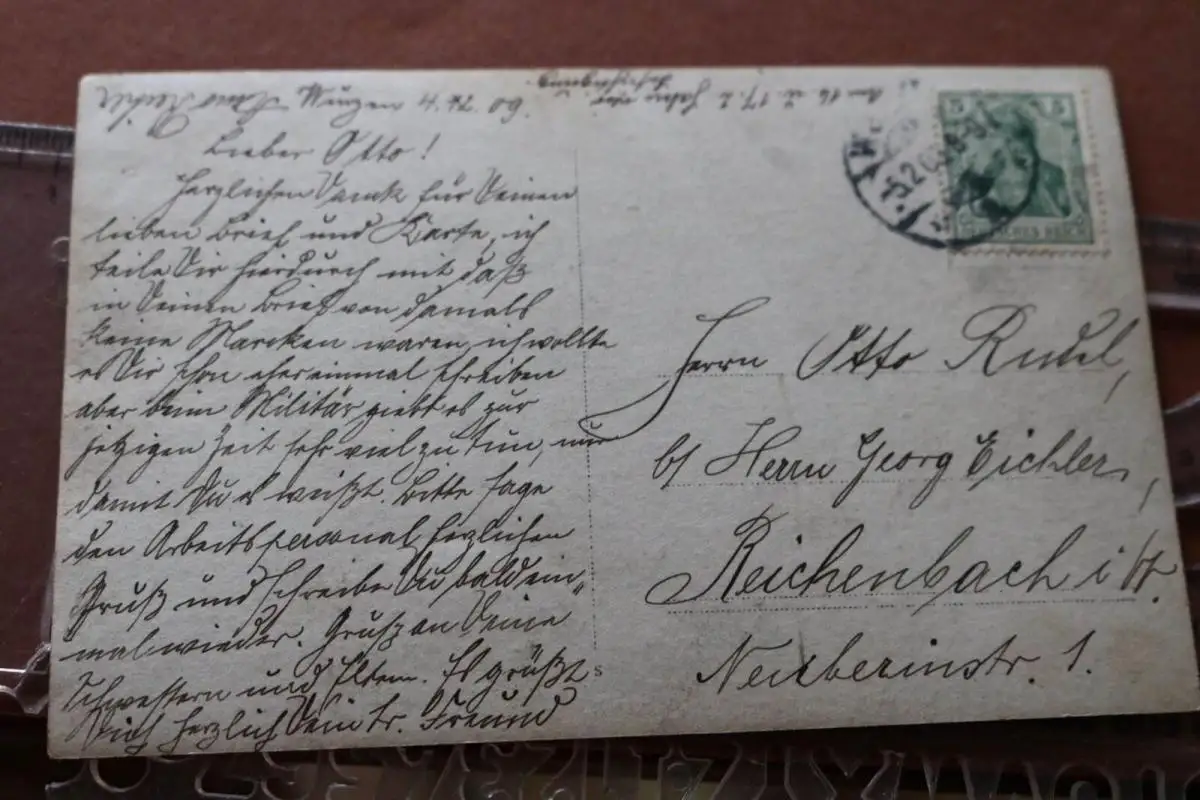 Wurzen 4.2.09.
Lieber Otto!
Herzlichen Dank für Deinen
lieben Brief und Karte, ich
teile Dir hierdurch mit daß
in Deinen Brief von damals
keine Marcken waren, ich wollte
es Dir schon eher einmal schreiben
aber beim Militär giebt es zur
jetzigen Zeit sehr viel zu tun, nur
damit Du es weißt. Bitte sage
den Arbeitspersonal herzlichen
Gruß und schreibe Du bald ein-
mal wieder. Gruß an Deine
Schwestern und Eltern. Es grüßt
Dich herzlich Dein tr. Freund
Am 16. u. 17. 2. haben wir
Besichtigung
5 5
DEUTSCHES REICH
5.2.09. 8-9
Herrn Otto Rudel,
b/ Herrn Georg Eichler,
Reichenbach i/V.
Neuberinstr. 1.